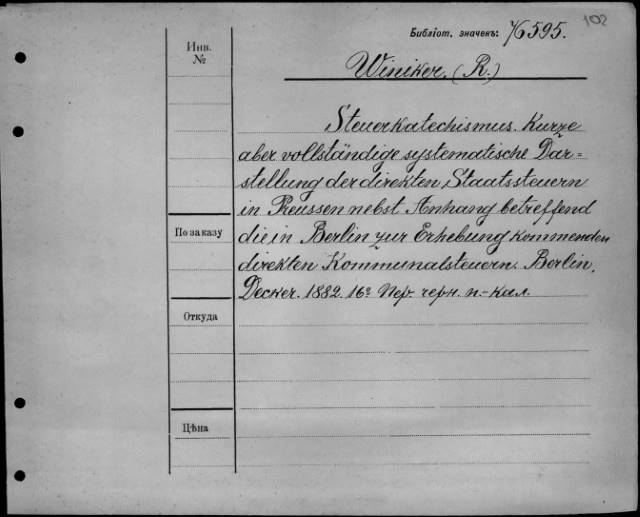 102
Библіот. значекъ: 4/6595.
Инв.
№
Winiker. (R.)
Steuerkatechismus. Kurze
aber vollständige systematische Dar=
stellung der direkten Staatssteuern
in Preussen nebst Anhang betreffend
По заказу
die in Berlin zur Erhebung kommenden
direkten Kommunalsteuern. Berlin,
Decker. 1882. 16º Пер. черн. п.-кал.
Откуда
Цѣна